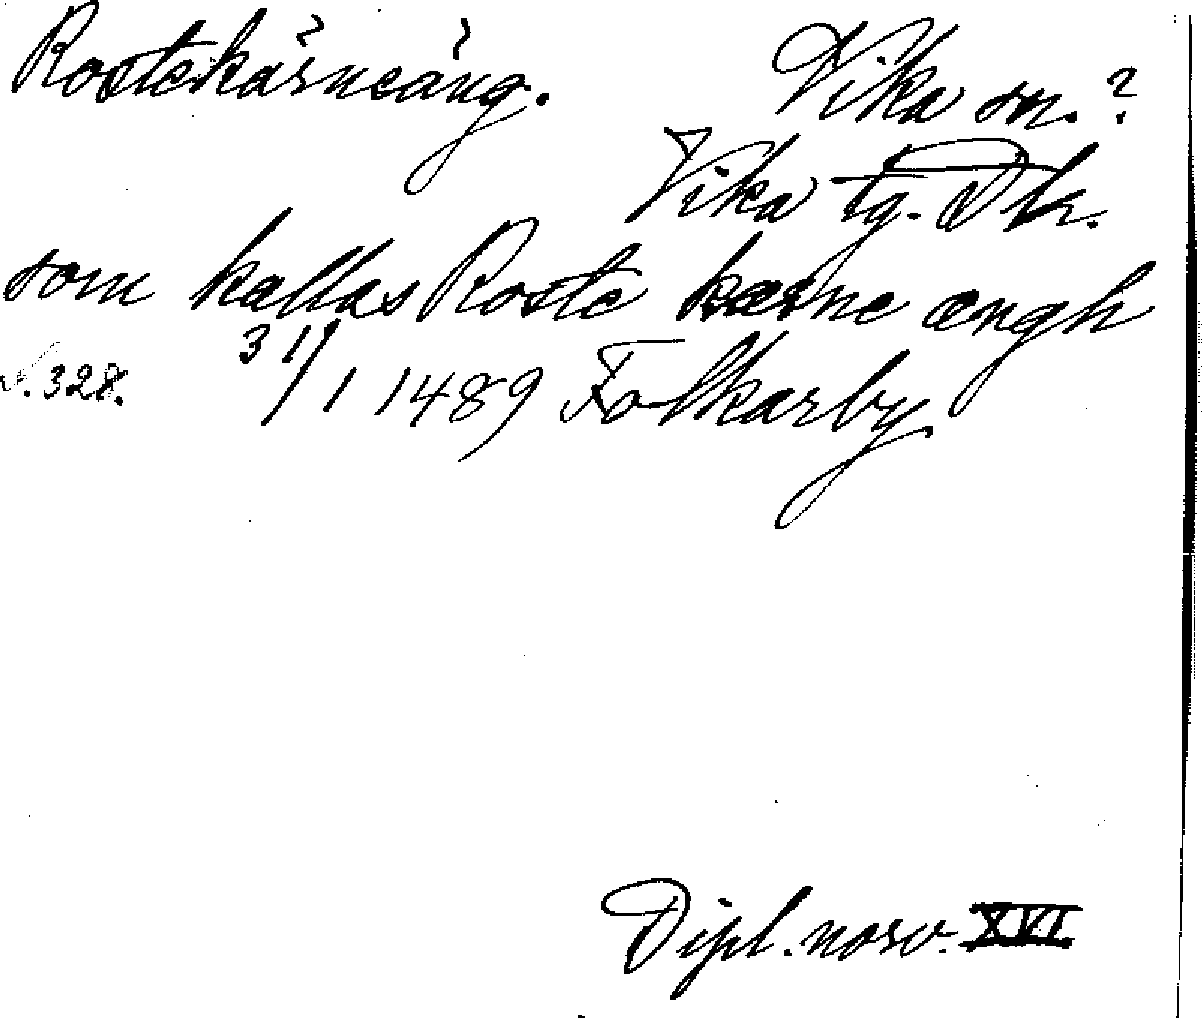 Rostekärneäng. Vika sn.?
Vika tg. Dlr.
som kallas Roste kærne ængh
s. 328. 31/1 1489 Folkarby
Dipl. norv. XVI